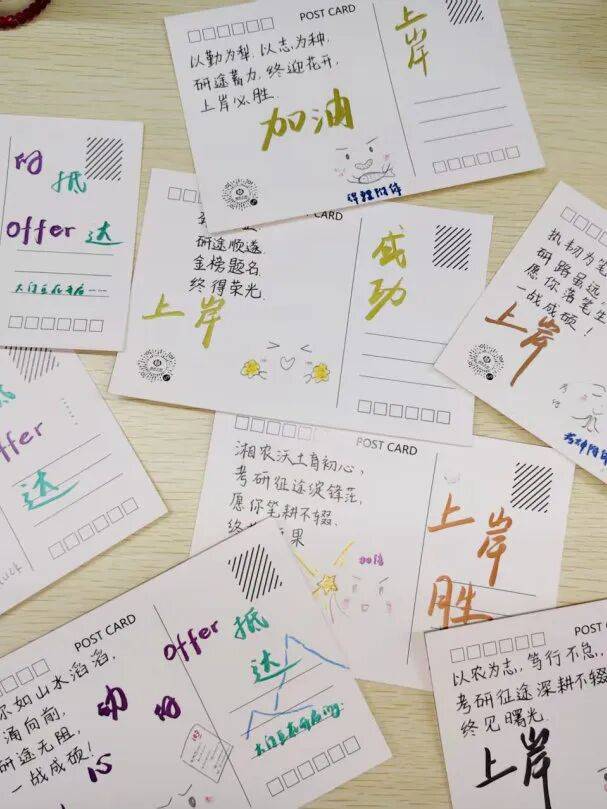 POST CARD
以勤为犁,以志为种,
研途蓄力,终迎花开,
上岸必胜.
加油
上岸
的
抵
offer 达
研途顺遂
金榜题名
终得荣光
上岸
成功
执韧为笔
研路虽远
愿你落笔生
一战成硕!
上岸
offer
达
POST CARD
湘农沃土育初心,
考研征途绽锋芒,
愿你笔耕不辍,
果
加油
上岸
胜
POST CARD
如山水滔滔,
涌向前,
研途无阻,
一战成硕!
offer 抵
达
POST CARD
以农为志,笃行不怠,
考研征途深耕不辍
终见曙光.
上岸